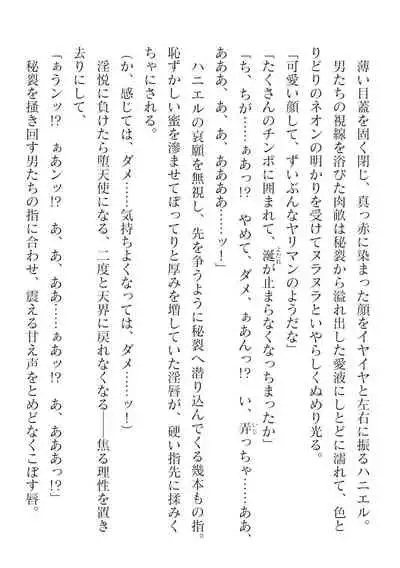 薄い目蓋を固く閉じ、真っ赤に染まった顔をイヤイヤと左右に振るハニエル。
男たちの視線を浴びた肉畝は秘裂から溢れ出した愛液にしとどに濡れて、色と
りどりのネオンの明かりを受けてヌラヌラといやらしくぬめり光る。
「可愛い顔して、ずいぶんなヤリマンのようだな」
「たくさんのチンポに囲まれて、涎が止まらなくなっちまったか」
「ち、ちが……ぁあっ!? やめて、ダメ、ぁあんっ!? い、弄っちゃ……ああ、
あああ、あ、あ、ああああ……ッ！」
ハニエルの哀願を無視し、先を争うように秘裂へ潜り込んでくる幾本もの指。
恥ずかしい蜜を滲ませてぽってりと厚みを増していた淫唇が、硬い指先に揉みく
ちゃにされる。
（か、感じては、ダメ……気持ちよくなっては、ダメ……ッ！）
淫悦に負けたら堕天使になる、二度と天界に戻れなくなる――焦る理性を置き
去りにして、
「ぁぅンッ!? ぁあンッ!? あ、あ、ああ……ぁあっ!? あ、あああっ!?」
秘裂を掻き回す男たちの指に合わせ、震える甘え声をとめどなくこぼす唇。